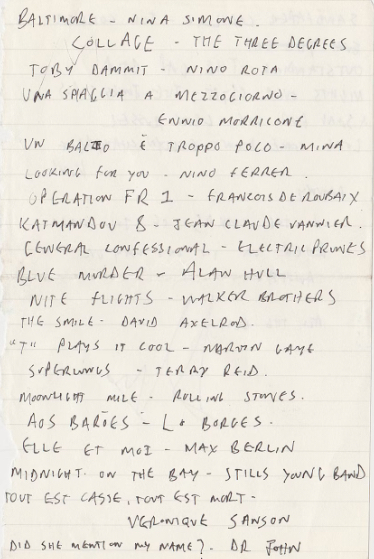 BALTIMORE - NINA SIMONE.
COLLAGE - THE THREE DEGREES
TOBY DAMMIT - NINO ROTA
UNA SPIAGGIA A MEZZOGIORNO -
ENNIO MORRICONE
UN BACIO È TROPPO POCO - MINA
LOOKING FOR YOU - NINO FERRER.
OPERATION FR 1 - FRANCOIS DE ROUBAIX
KATMANDOU 8 - JEAN CLAUDE VANNIER.
GENERAL CONFESSIONAL - ELECTRIC PRUNES
BLUE MURDER - ALAN HULL
NITE FLIGHTS - WALKER BROTHERS
THE SMILE - DAVID AXELROD.
"T" PLAYS IT COOL - MARVIN GAYE
SUPERLUNGS - TERRY REID.
MOONLIGHT MILE - ROLLING STONES.
AOS BARÕES - Lô BORGES.
ELLE ET MOI - MAX BERLIN
MIDNIGHT ON THE BAY - STILLS YOUNG BAND
TOUT EST CASSE, TOUT EST MORT -
VERONIQUE SANSON
DID SHE MENTION MY NAME?. DR JOHN